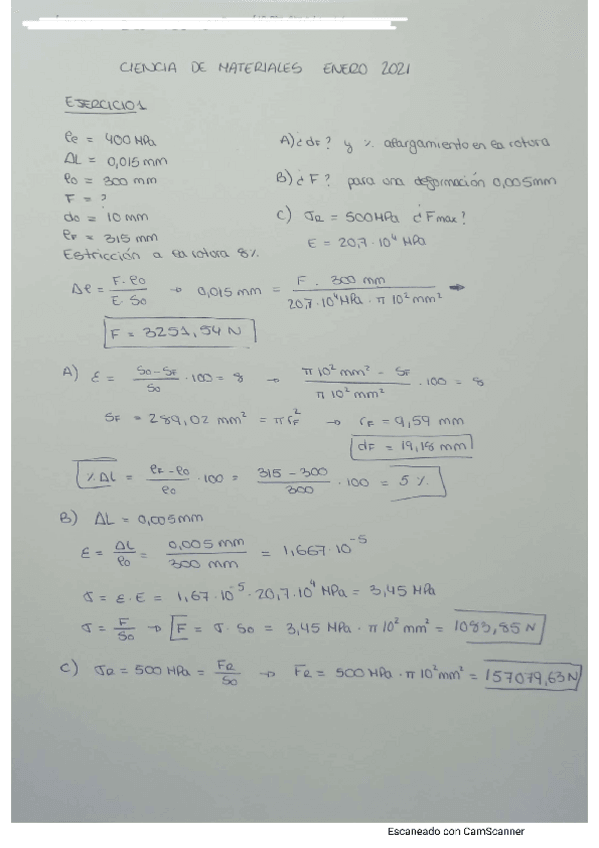 CIENCIA DE MATERIALES ENERO 2021
EJERCICIO 1
σe = 400 MPa
ΔL = 0,015 mm
l0 = 300 mm
F = ?
d0 = 10 mm
lF = 315 mm
Estricción a la rotura 8%
A) ¿dF? y % alargamiento en la rotura
B) ¿F? para una deformación 0,005mm
C) σR = 500MPa ¿Fmax?
E = 20,7·10⁴ MPa
Δl = F·l0 / E·S0 → 0,015 mm = F · 300 mm / 20,7·10⁴MPa · π 10² mm² →
F = 3251,54 N
A) ε = S0-SF / S0 ·100 = 8 → π 10² mm² - SF / π 10² mm² ·100 = 8
SF = 289,02 mm² = π rF² → rF = 9,59 mm
dF = 19,18 mm
% ΔL = lF-l0 / l0 ·100 = 315-300 / 300 ·100 = 5%
B) ΔL = 0,005mm
ε = ΔL / l0 = 0,005 mm / 300 mm = 1,667·10⁻⁵
σ = ε·E = 1,67·10⁻⁵·20,7·10⁴ MPa = 3,45 MPa
σ = F / S0 → F = σ·S0 = 3,45 MPa · π 10² mm² = 1083,85 N
C) σR = 500 MPa = FR / S0 → FR = 500 MPa · π 10² mm² = 157079,63 N
Escaneado con CamScanner